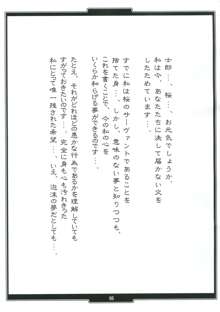 士郎…、桜…、お元気でしょうか。
私は今、あなたたちに決して届かない文を
したためています…。
すでに私は桜のサーヴァントであることを
捨てた身…。しかし、意味のない夢と知りつつも、
これを書くことで、今の私の心を
いくらか和らげる事ができるのです…。
たとえ、それがどれほどの愚かな行為であるかを理解していても
すがっておきたいのです…。完全に身も心も汚れきった
私にとって唯一残された希望…。いえ、泡沫の夢だとしても…。